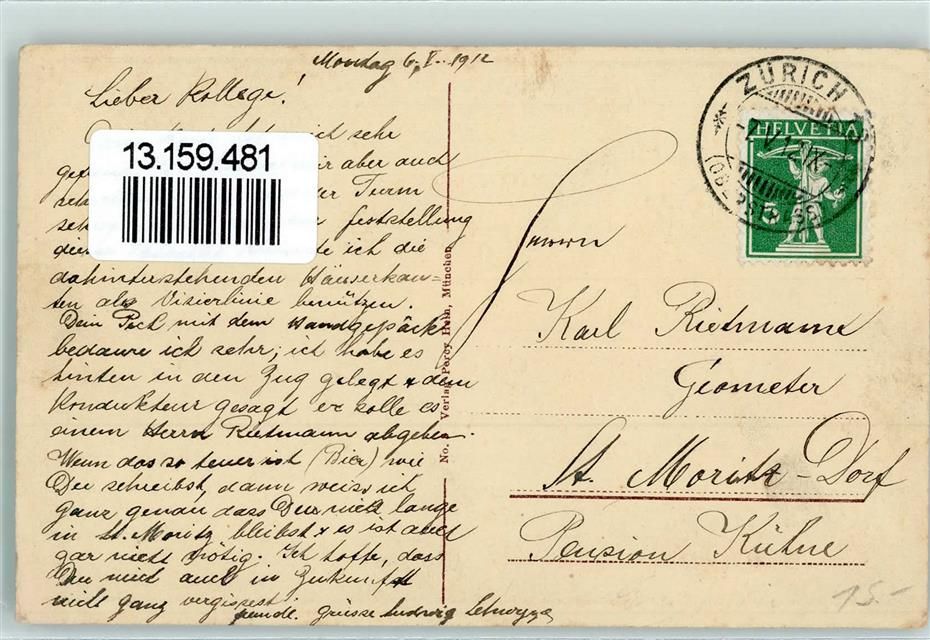 Montag 6. V. 1912
Lieber Kollege!
ich sehr
aber auch
Turm
feststellung
ich die
dahinterstehenden Häuserkan=
ten als Visierlinie benützen.
Dein Pech mit dem Handgepäck
bedaure ich sehr; ich habe es
hinten in den Zug gelegt & dem
Kondukteur gesagt er solle es
einem Herrn Rietmann abgeben.
Wenn das so teuer ist (Bier) wie
Du schreibst, dann weiss ich
ganz genau dass Du nicht lange
in St. Moritz bleibst & es ist auch
gar nicht nötig. Ich hoffe, dass
Du mich auch in Zukunft
nicht ganz vergissest
freundl. grüsse Ludwig
13.159.481
No. Verlag Percy Hein, München
ZÜRICH
HELVETIA
5
Herrn
Karl Rietmann
Geometer
St. Moritz-Dorf
Pension Kühne
15.-